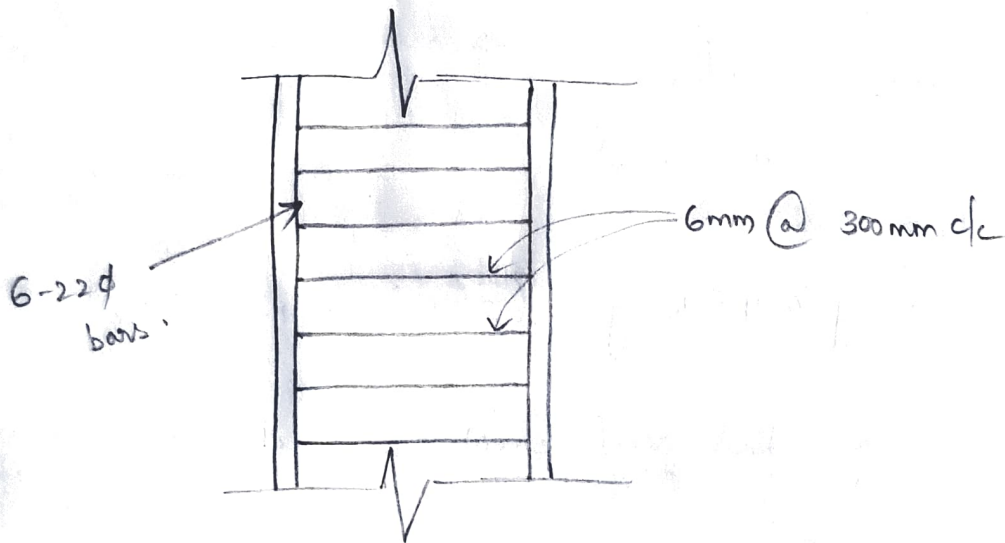 6-22ϕ
bars.
6mm @ 300mm c/c